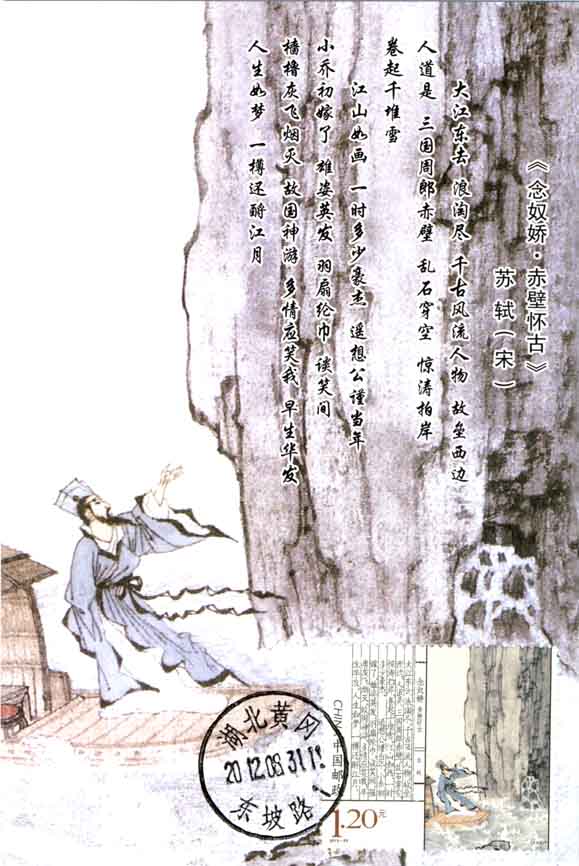 《念奴娇·赤壁怀古》
苏 轼（宋）
大江东去 浪淘尽 千古风流人物 故垒西边
人道是 三国周郎赤壁 乱石穿空 惊涛拍岸
卷起千堆雪
江山如画 一时多少豪杰 遥想公谨当年
小乔初嫁了 雄姿英发 羽扇纶巾 谈笑间
樯橹灰飞烟灭 故国神游 多情应笑我 早生华发
人生如梦 一樽还酹江月
湖北黄冈
东坡路
中国邮政
1.20元